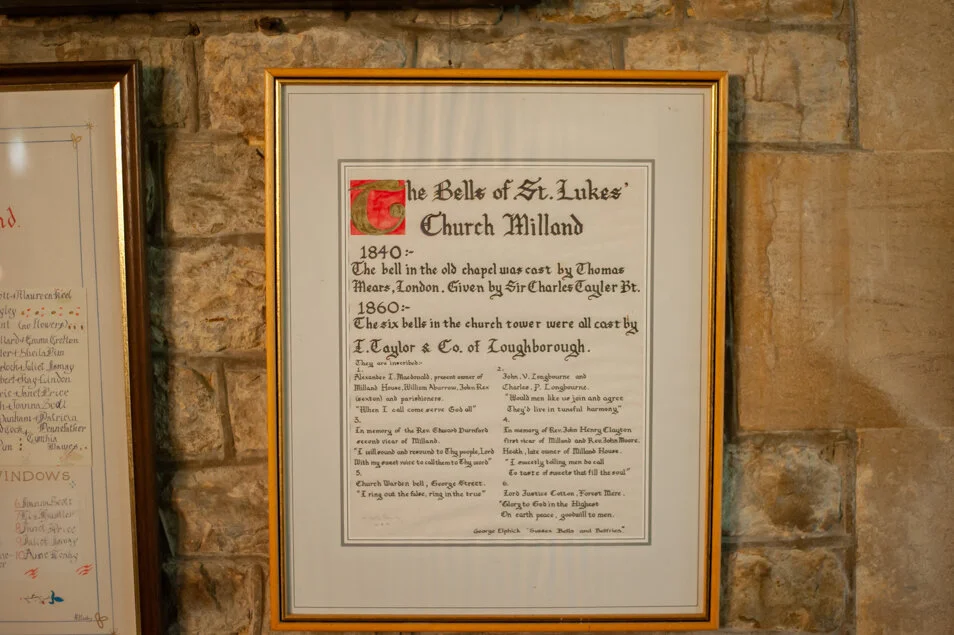 The Bells of St. Lukes'
Church Milland
1840:-
The bell in the old chapel was cast by Thomas
Mears, London. Given by Sir Charles Tayler Bt.
1860:-
The six bells in the church tower were all cast by
I. Taylor & Co. of Loughborough.
They are inscribed:-
1.
Alexander I. Macdonald, present owner of
Milland House, William Aburrow, John Rex
(sexton) and parishioners.
"When I call come serve God all"
2.
John. V. Longbourne and
Charles. P. Longbourne.
"Would men like us join and agree
They'd live in tuneful harmony"
3.
In memory of the Rev. Edward Durnford
second vicar of Milland.
"I will sound and resound to Thy people, Lord
With my sweet voice to call them to Thy word"
4.
In memory of Rev. John Henry Clayton
first vicar of Milland and Rev. John Moore.
Heath, late owner of Milland House.
"I sweetly tolling men do call
To taste of sweets that fill the soul"
5.
Church Warden bell, George Street.
"I ring out the false, ring in the true"
6.
Lord Justice Cotton, Forest Mere.
"Glory to God in the Highest
On earth peace, goodwill to men.
George Elphick "Sussex Bells and Belfries"
d.
Maureen
Flowers
Emma Grafton
Sheila
Juliet
Kay Lindon
Janet Price
Joanna Scott
Patricia
Pennefather
Cynthia
WINDOWS
Joanna Scott
Janet Price
Juliet
Anne